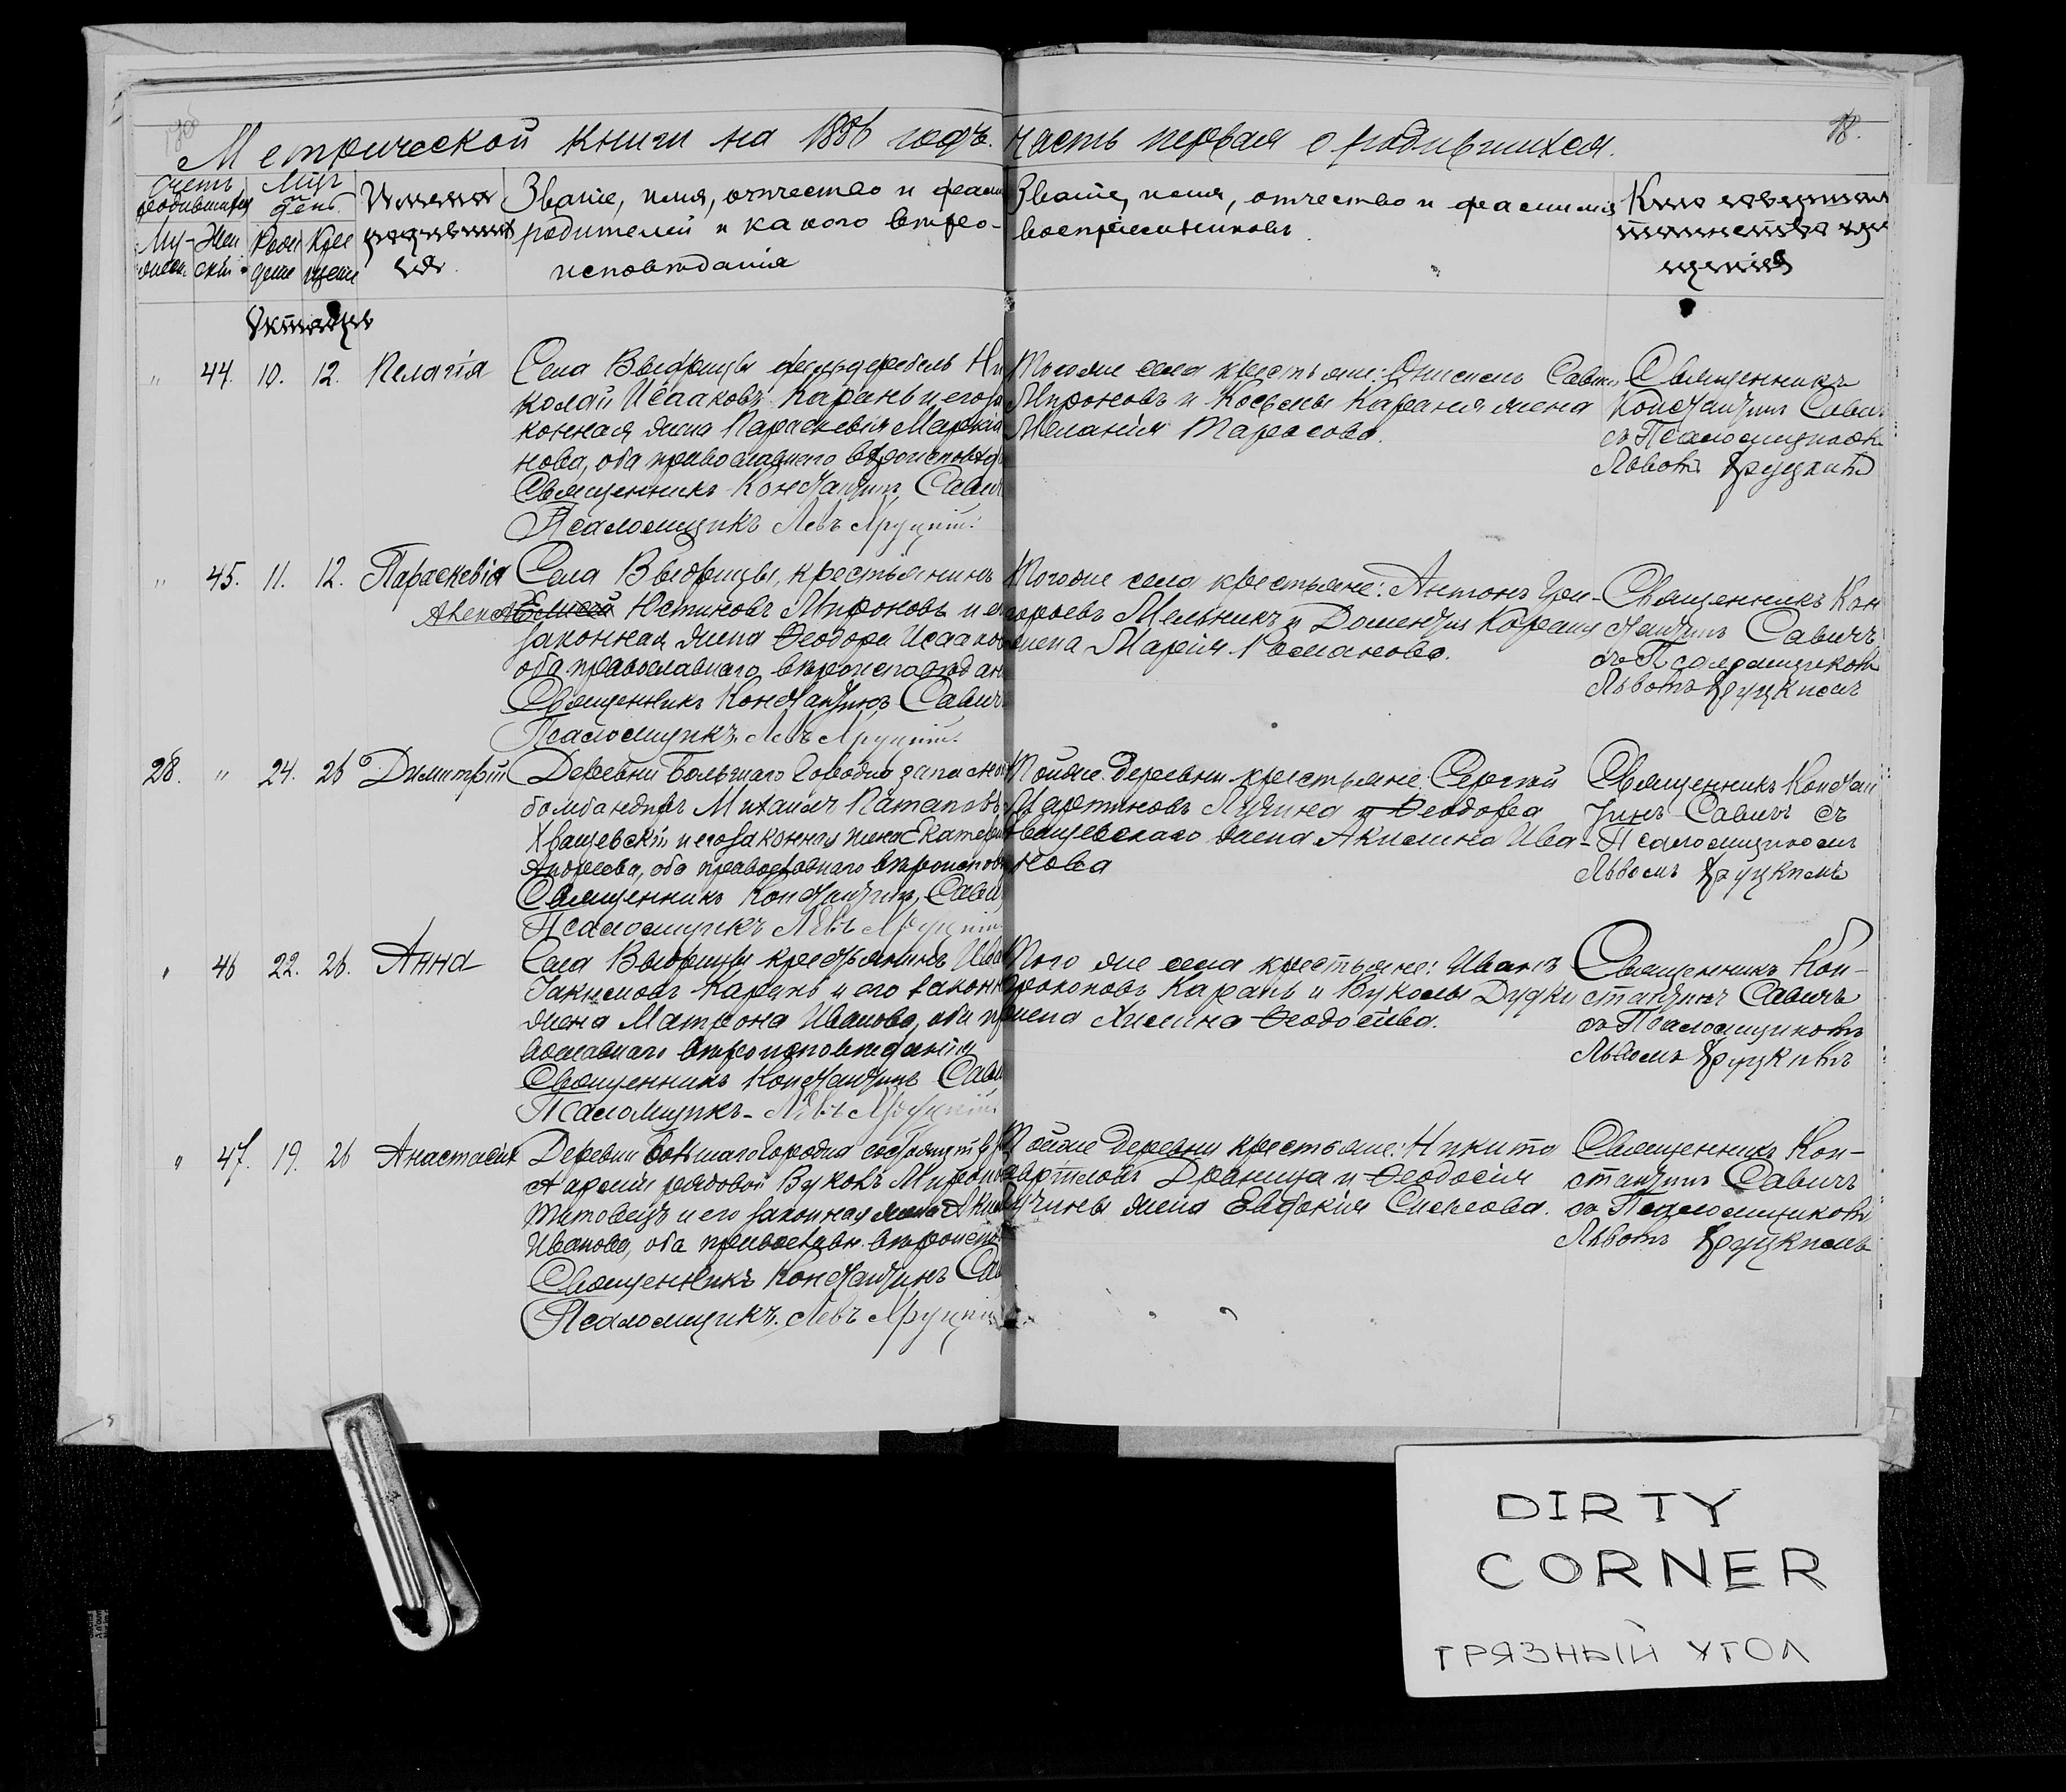 Метрической книги на 1886 годъ. часть первая о родившихся.
18.
Счетъ родившихся
Муж-
Жен
скій
Мѣсъ
день
Рож
Кре
щен
Имена
родивших
ся.
Званіе, имя, отчество и фами
родителей и какого вѣро-
исповѣданія
Званіе, имя, отчество и фамилія
воспріемниковъ.
Кто совершал
таинство кре
щенія
Октябрь
" 44. 10. 12. Пелагія
Села Выдрицы фельдфебель Ни
колай Исааковъ Карань и его за
конная жена Параскевія
нова, оба православнаго вѣроисповѣд
Священникъ Константинъ Савич
Псаломщикъ Левъ Хруцкій.
Тогоже села крестьяне: Онисимъ Савин
Мироновъ и Косьмы Караня жена
Меланія Тарасова.
Священникъ
Константин Савич
съ Псаломщикомъ
Львомъ Хруцкимъ
" 45. 11. 12. Параскевія
Села Выдрицы, крестьянинъ
Юстиновъ Мироновъ и е
законная жена Ѳеодора Исааков
оба православнаго вѣроисповѣдан
Священникъ Константинъ Савич
Псаломщикъ Левъ Хруцкій.
Тогоже села крестьяне: Антонъ Гри-
горьевъ Мельникъ и Доментія Караня
жена Марія Романова.
Священникъ Кон
стантинъ Савичъ
съ Псаломщикомъ
Львомъ Хруцкимъ
28. " 24. 26 Димитрій
Деревни Большаго Городна запасной
бомбандиръ Михаилъ Патаповъ
Хващевскій и его законная жена Екатери
Андреева, оба православнаго вѣроисповѣ
Священникъ Константинъ Савич
Псаломщикъ Левъ Хруцкій
Тойже деревни крестьяне: Сергей
Мартиновъ Лучина и Ѳеодора
Хващевскаго жена Акилина Ива-
нова
Священникъ Констан
тинъ Савичъ съ
Псаломщикомъ
Львомъ Хруцкимъ
" 46 22. 26. Анна
Села Выдрицы крестьянинъ Ива
Іакимовъ Карань и его законн
жена Матрона Иванова, оба пра
вославнаго вѣроисповѣданія
Священникъ Константинъ Сави
Псаломщикъ Левъ Хруцкій.
Того же села крестьяне: Иванъ
Прокоповъ Карань и Вуколы Дудки
жена Химина Ѳеодосіева.
Священникъ Кон-
стантинъ Савичъ
съ Псаломщикомъ
Львомъ Хруцкимъ
" 47. 19. 26 Анастасія
Деревни Большаго Городна состоящій въ
Арміи рядовой Вуколъ Миронов
Титовецъ и его законная жена Акил
Иванова, оба православн. вѣроиспов
Священникъ Константинъ Сав
Псаломщикъ. Левъ Хруцкій
Тойже деревни крестьяне: Никита
Драница и Ѳеодосія
Лучины жена Евдокія
Священникъ Кон-
стантинъ Савичъ
съ Псаломщикомъ
Львомъ Хруцкимъ
DIRTY
CORNER
ГРЯЗНЫЙ УГОЛ